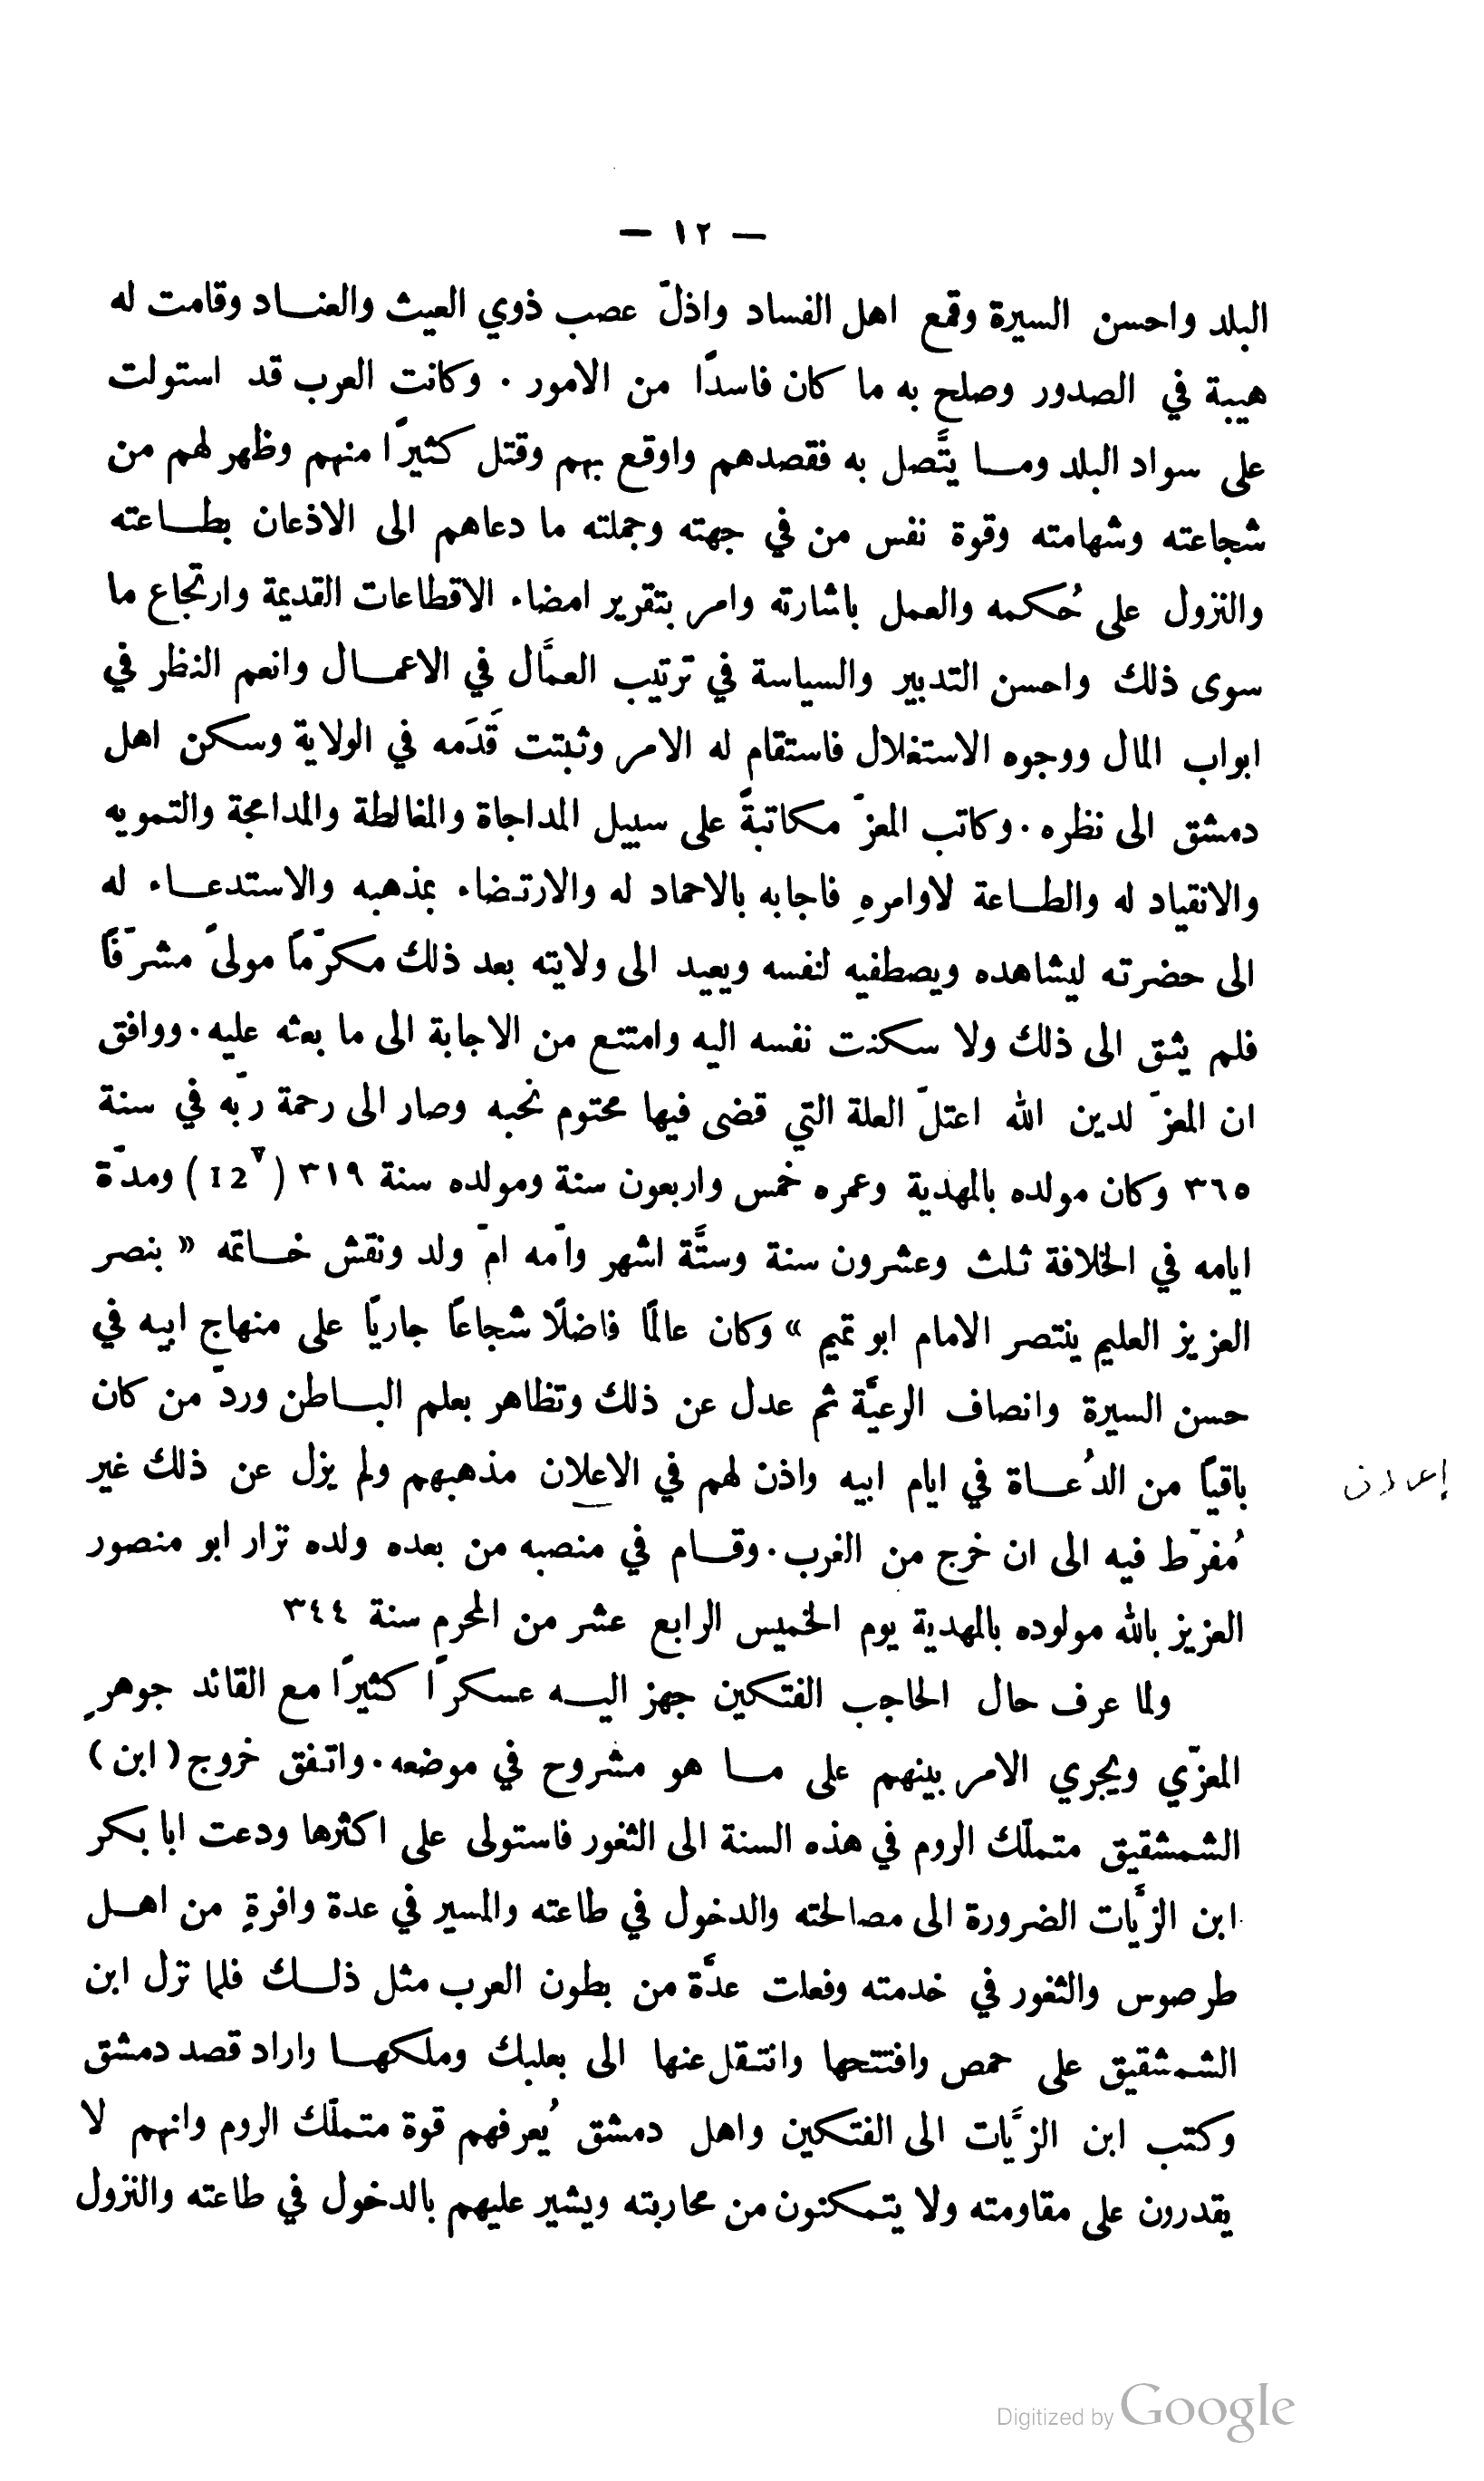 — ١٢ —
البلد واحسن السيرة وقمع اهل الفساد واذلّ عصب ذوي العيث والعنـاد وقامت له
هيبة في الصدور وصلح به ما كان فاسدًا من الامور . وكانت العرب قد استولت
على سواد البلد ومـا يتَّصل به فقصدهم واوقع بهم وقتل كثيرًا منهم وظهر لهم من
شجاعته وشهامته وقوة نفس من في جهته وجملته ما دعاهم الى الاذعان بطـاعته
والنزول على حُكمه والعمل باشارته وامر بتقرير امضاء الاقطاعات القديمة وارتجاع ما
سوى ذلك واحسن التدبير والسياسة في ترتيب العمَّال في الاعمـال وانعم النظر في
ابواب المال ووجوه الاستغلال فاستقام له الامر وثبتت قَدَمه في الولاية وسكن اهل
دمشق الى نظره . وكاتب المعزّ مكاتبةً على سبيل المداجاة والمغالطة والمدامجة والتمويه
والانقياد له والطـاعة لاوامرهِ فاجابه بالاحماد له والارتضاء بمذهبه والاستدعـاء له
الى حضرته ليشاهده ويصطفيه لنفسه ويعيد الى ولايته بعد ذلك مكرّمًا مولىً مشرّفًا
فلم يثق الى ذلك ولا سكنت نفسه اليه وامتنع من الاجابة الى ما بعثه عليه . ووافق
ان المعزّ لدين الله اعتلّ العلة التي قضى فيها محتوم نحبه وصار الى رحمة ربّه في سنة
٣٦٥ وكان مولده بالمهدية وعمره خمس واربعون سنة ومولده سنة ٣١٩ (12ᵛ) ومدّة
ايامه في الخلافة ثلث وعشرون سنة وستَّة اشهر وامّه امّ ولد ونقش خـاتمه « بنصر
العزيز العليم ينتصر الامام ابو تميم » وكان عالمًا فاضلًا شجاعًا جاريًا على منهاج ابيه في
حسن السيرة وانصاف الرعيَّة ثم عدل عن ذلك وتظاهر بعلم البـاطن وردّ من كان
باقيًا من الدُعـاة في ايام ابيه واذن لهم في الاعلان مذهبهم ولم يزل عن ذلك غير
إعلان
مُفرّط فيه الى ان خرج من الغرب . وقـام في منصبه من بعده ولده نزار ابو منصور
العزيز بالله مولوده بالمهدية يوم الخميس الرابع عشر من المحرم سنة ٣٤٤
ولما عرف حال الحاجب الفتكين جهز اليـه عسكرًا كثيرًا مع القائد جوهرٍ
المعزّي ويجري الامر بينهم على مـا هو مشروح في موضعه . واتفق خروج (ابن)
الشمشقيق متملّك الروم في هذه السنة الى الثغور فاستولى على اكثرها ودعت ابا بكر
ابن الزيَّات الضرورة الى مصالحته والدخول في طاعته والمسير في عدة وافرةٍ من اهـل
طرصوس والثغور في خدمته وفعلت عدَّة من بطون العرب مثل ذلـك فلما نزل ابن
الشمشقيق على حمص وافتتحها وانتقل عنها الى بعلبك وملكهـا واراد قصد دمشق
وكتب ابن الزيَّات الى الفتكين واهل دمشق يُعرفهم قوة متملّك الروم وانهم لا
يقدرون على مقاومته ولا يتمكنون من محاربته ويشير عليهم بالدخول في طاعته والنزول
Digitized by Google